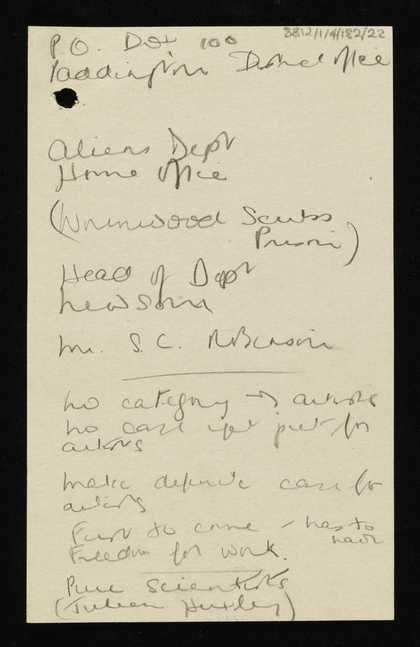 8812/1/4/182/22
P.O. Box 100
Paddington District Office
Aliens Dept
Home Office
(Wormwood Scrubs
Prison)
Head of Dept
Newsom
Mr. S.C. Roberson
No category of artists
No case yet put for
artists
Make definite case for
artists
First to come - has to
have
Freedom for work.
Pure Scientists
(Julian Huxley)